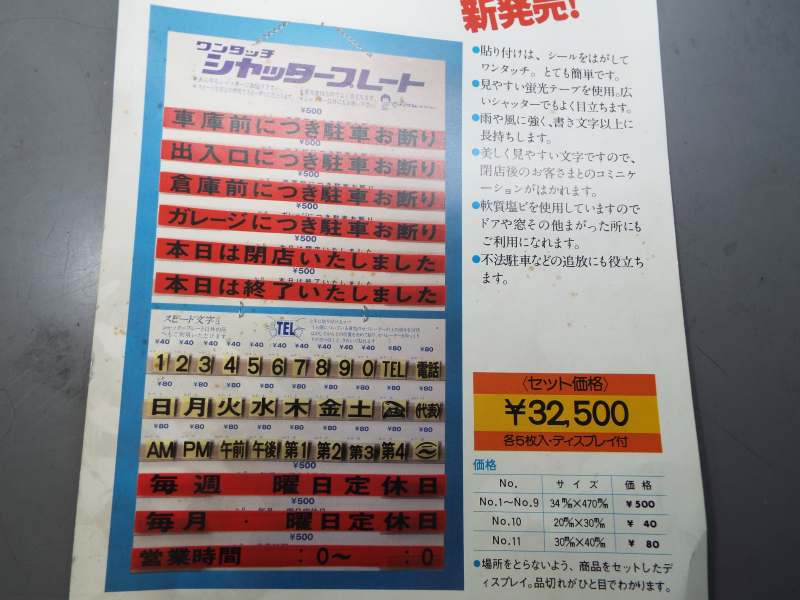 新発売!
ワンタッチ
シャッタープレート
¥500
車庫前につき駐車お断り
¥500
出入口につき駐車お断り
¥500
倉庫前につき駐車お断り
¥500
ガレージにつき駐車お断り
¥500
本日は閉店いたしました
¥500
本日は終了いたしました
スピード文字
シャッタープレート以外の所
へもご利用いただけます
TEL
¥40 ¥40 ¥40 ¥40 ¥40 ¥40 ¥40 ¥40 ¥40 ¥40 ¥80 ¥80
1 2 3 4 5 6 7 8 9 0 TEL 電話
¥80 ¥80 ¥80 ¥80 ¥80 ¥80 ¥80 ¥80 ¥80
日 月 火 水 木 金 土 (代表)
¥80 ¥80 ¥80 ¥80 ¥80 ¥80 ¥80 ¥80 ¥80
AM PM 午前 午後 第1 第2 第3 第4
¥500
毎週 曜日定休日
¥500
毎月 ・ 曜日定休日
¥500
営業時間 :0〜 :0
●貼り付けは、シールをはがして
ワンタッチ。とても簡単です。
●見やすい蛍光テープを使用。広
いシャッターでもよく目立ちます。
●雨や風に強く、書き文字以上に
長持ちします。
●美しく見やすい文字ですので、
閉店後のお客さまとのコミニケ
ーションがはかれます。
●軟質塩ビを使用していますので
ドアや窓その他まがった所にも
ご利用になれます。
●不法駐車などの追放にも役立ち
ます。
〈セット価格〉
¥32,500
各5枚入・ディスプレイ付
価格
No. サイズ 価格
No.1〜No.9 34㎜×470㎜ ¥500
No.10 20㎜×30㎜ ¥ 40
No.11 30㎜×40㎜ ¥ 80
●場所をとらないよう、商品をセットしたデ
ィスプレイ。品切れがひと目でわかります。